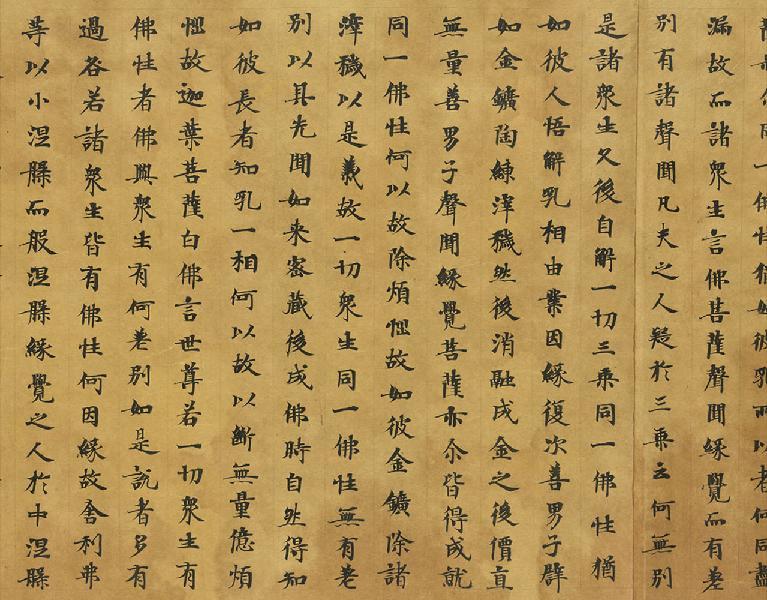 一佛性猶如彼乳所以者何同盡
漏故而諸衆生言佛菩薩聲聞緣覺而有差
別有諸聲聞凡夫之人疑於三乘云何無別
是諸衆生久後自解一切三乘同一佛性猶
如彼人悟解乳相由業因緣復次善男子譬
如金鑛陶練滓穢然後消融成金之後價直
無量善男子聲聞緣覺菩薩亦尒皆得成就
同一佛性何以故除煩惱故如彼金鑛除諸
滓穢以是義故一切衆生同一佛性無有差
別以其先聞如来密藏後成佛時自然得知
如彼長者知乳一相何以故以斷無量億煩
惱故迦葉菩薩白佛言世尊若一切衆生有
佛性者佛與衆生有何差別如是說者多有
過咎若諸衆生皆有佛性何因緣故舍利弗
等以小涅槃而般涅槃緣覺之人於中涅槃